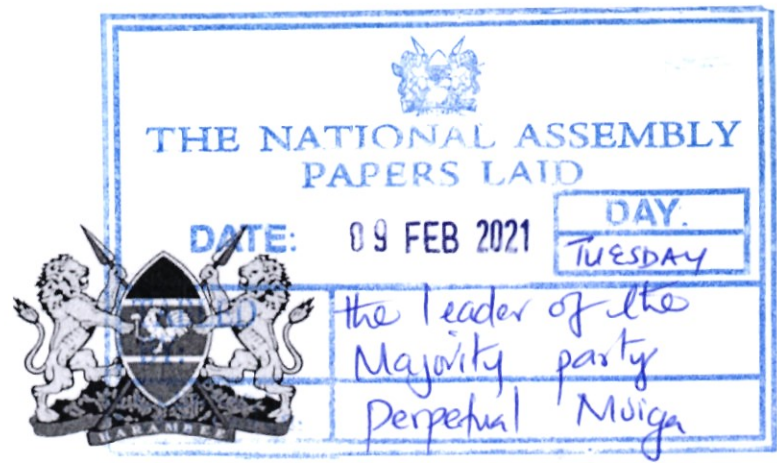 THE NATIONAL ASSEMBLY
PAPERS LAID
DATE: 09 FEB 2021
DAY.
TUESDAY
the leader of the
Majority party
Perpetual Muiga
HARAMBEE